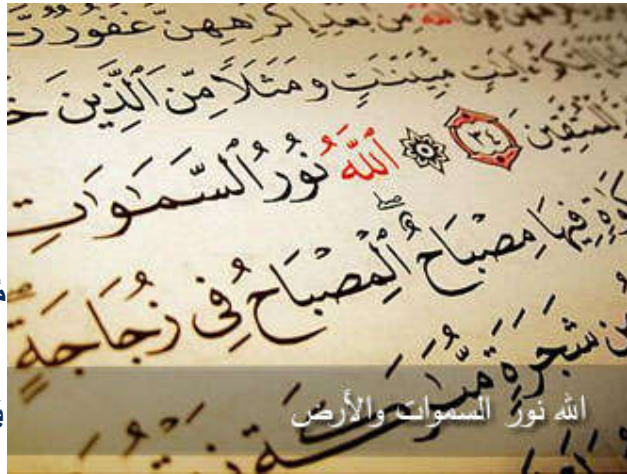 ٱللَّهِ مِنۢ بَعْدِ إِكْرَٰهِهِنَّ غَفُورٌ
ءَايَٰتٍ مُّبَيِّنَٰتٍ وَمَثَلًا مِّنَ ٱلَّذِينَ
لِّلْمُتَّقِينَ ٣٤ ۞ ٱللَّهُ نُورُ ٱلسَّمَٰوَٰتِ
فِيهَا مِصْبَاحٌ ۖ ٱلْمِصْبَاحُ فِى زُجَاجَةٍ
شَجَرَةٍ
الله نور السموات والأرض